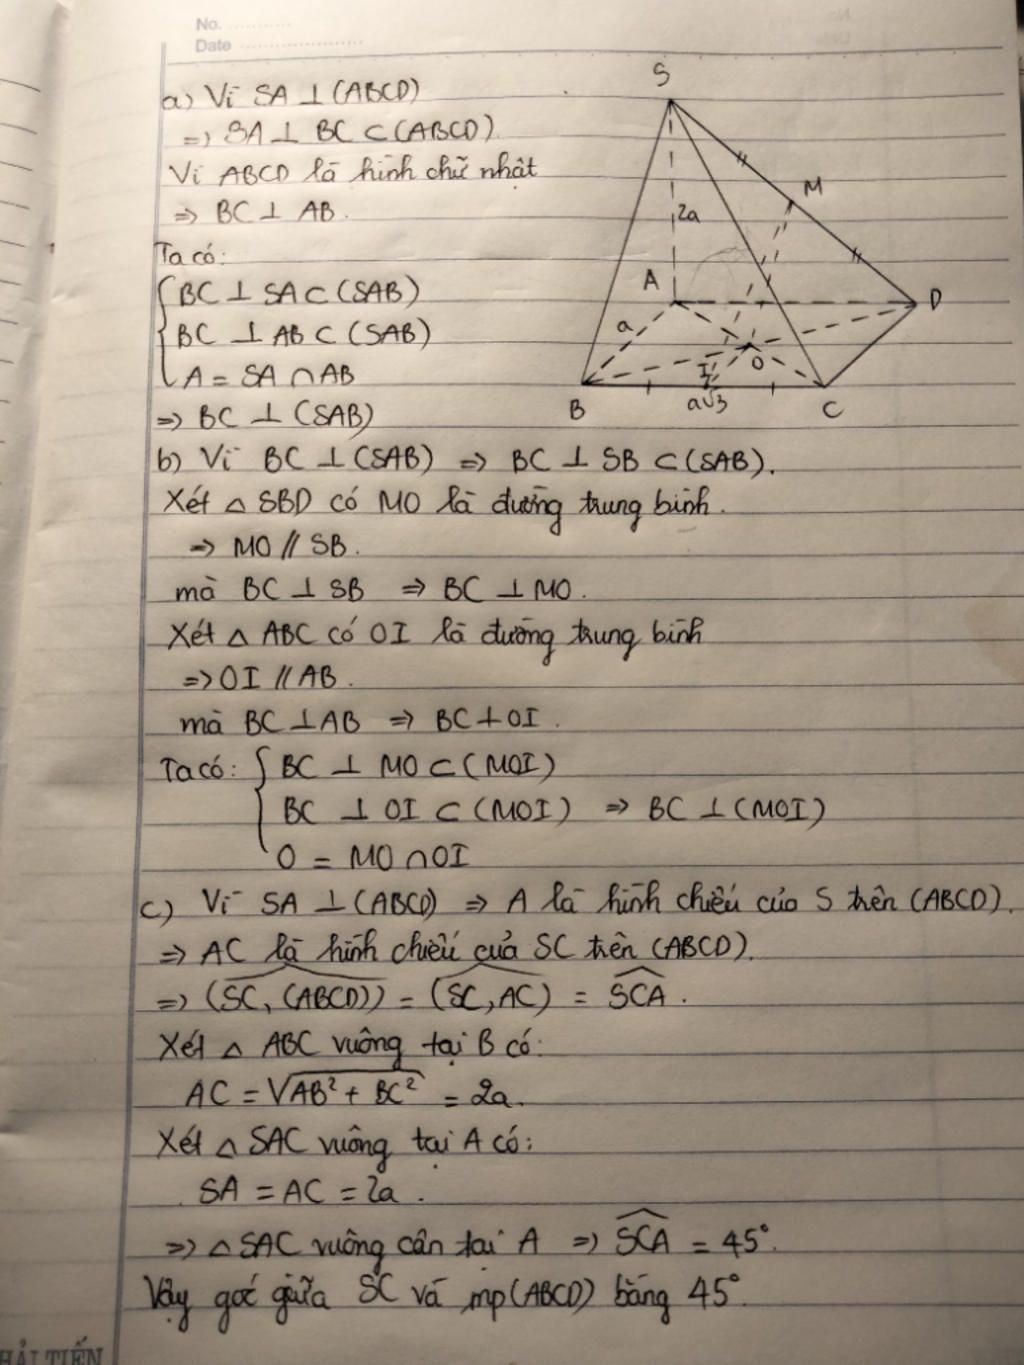 No. ............
Date ....................
a) Vì SA ⊥ (ABCD)
=> SA ⊥ BC ⊂ (ABCD).
Vì ABCD là hình chữ nhật
=> BC ⊥ AB.
Ta có:
{ BC ⊥ SA ⊂ (SAB)
BC ⊥ AB ⊂ (SAB)
A = SA ∩ AB
=> BC ⊥ (SAB)
S
M
2a
A
D
a
I
O
B
a√3
C
b) Vì BC ⊥ (SAB) => BC ⊥ SB ⊂ (SAB).
Xét △ SBD có MO là đường trung bình.
=> MO // SB.
mà BC ⊥ SB => BC ⊥ MO.
Xét △ ABC có OI là đường trung bình
=> OI // AB.
mà BC ⊥ AB => BC ⊥ OI.
Ta có: { BC ⊥ MO ⊂ (MOI)
BC ⊥ OI ⊂ (MOI) => BC ⊥ (MOI)
O = MO ∩ OI
c) Vì SA ⊥ (ABCD) => A là hình chiếu của S trên (ABCD).
=> AC là hình chiếu của SC trên (ABCD).
=> (SC, (ABCD))^ = (SC, AC)^ = SCA^.
Xét △ ABC vuông tại B có:
AC = √(AB² + BC²) = 2a.
Xét △ SAC vuông tại A có:
SA = AC = 2a.
=> △ SAC vuông cân tại A => SCA^ = 45°.
Vậy góc giữa SC và mp(ABCD) bằng 45°.
HẢI TIẾN